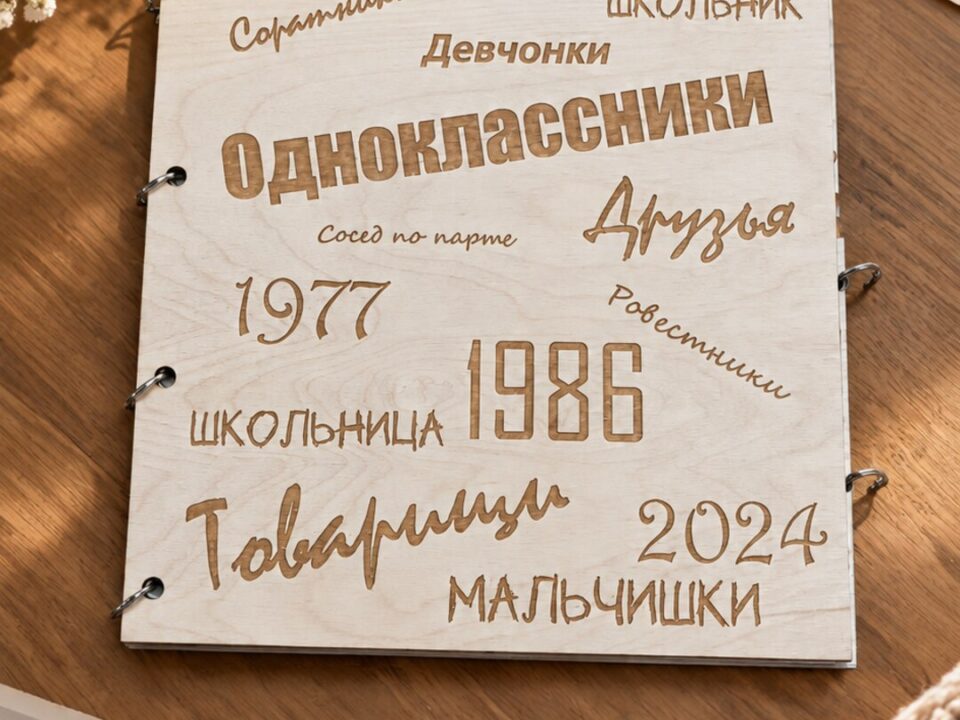 Соратники
ШКОЛЬНИК
Девчонки
Одноклассники
Друзья
Сосед по парте
1977
Ровестники
1986
ШКОЛЬНИЦА
Товарищи
2024
МАЛЬЧИШКИ